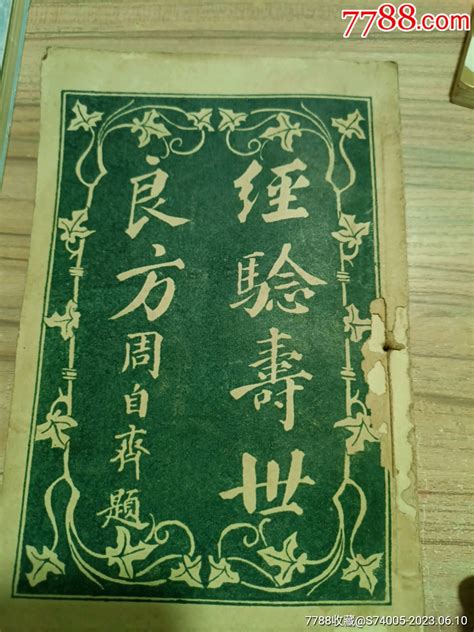 7788.com
中国收藏热线
經驗壽世
良方周自齊題
7788收藏@S74005-2023.06.10